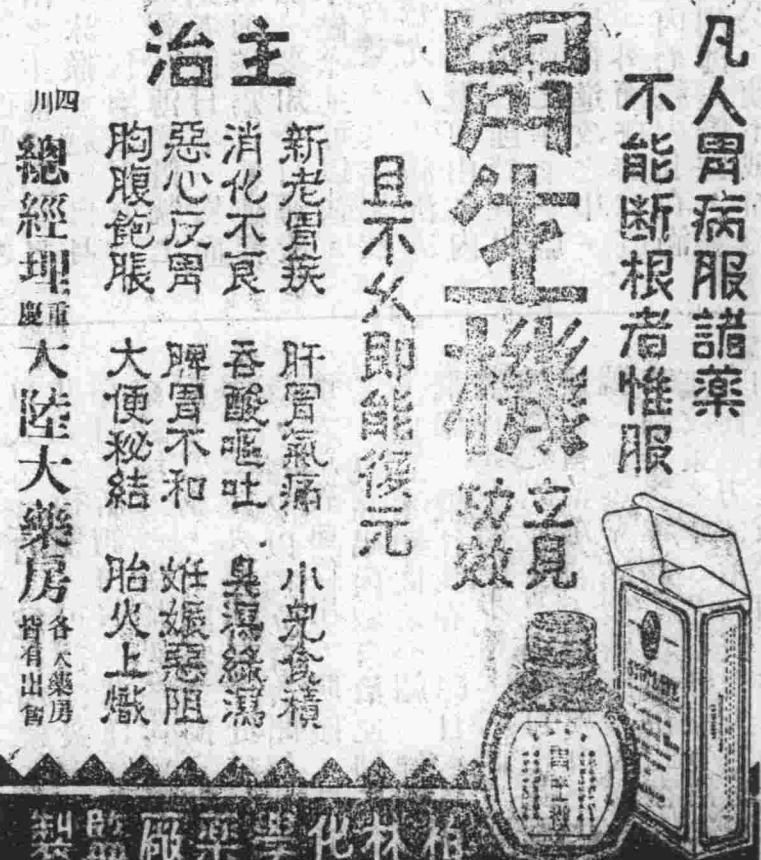 凡人胃病服諸藥
不能断根者惟服
胃生機
立見
功效
且不久即能復元
主治
新老胃疾 肝胃氣痛 小兒食積
消化不良 吞酸嘔吐 臭瀉綠瀉
惡心反胃 脾胃不和 妊娠惡阻
胸腹飽脹 大便秘結 胎火上熾
四川 總經理 重慶 大陸大藥房 各大藥房皆有出售
胃生機
柏林化學藥厰監製